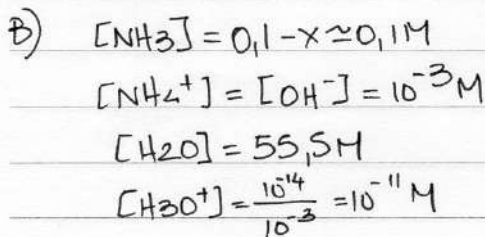 B) [NH3] = 0,1 - x ≃ 0,1M
[NH4⁺] = [OH⁻] = 10⁻³ M
[H2O] = 55,5M
[H3O⁺] = 10⁻¹⁴/10⁻³ = 10⁻¹¹ M